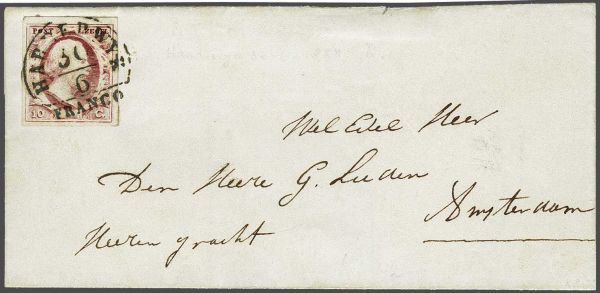 POST ZEGEL
HARDERWYK
30
6
FRANCO
10 C.
Wel Edel Heer
Den Heere G. Luden
Heeren gracht
Amsterdam